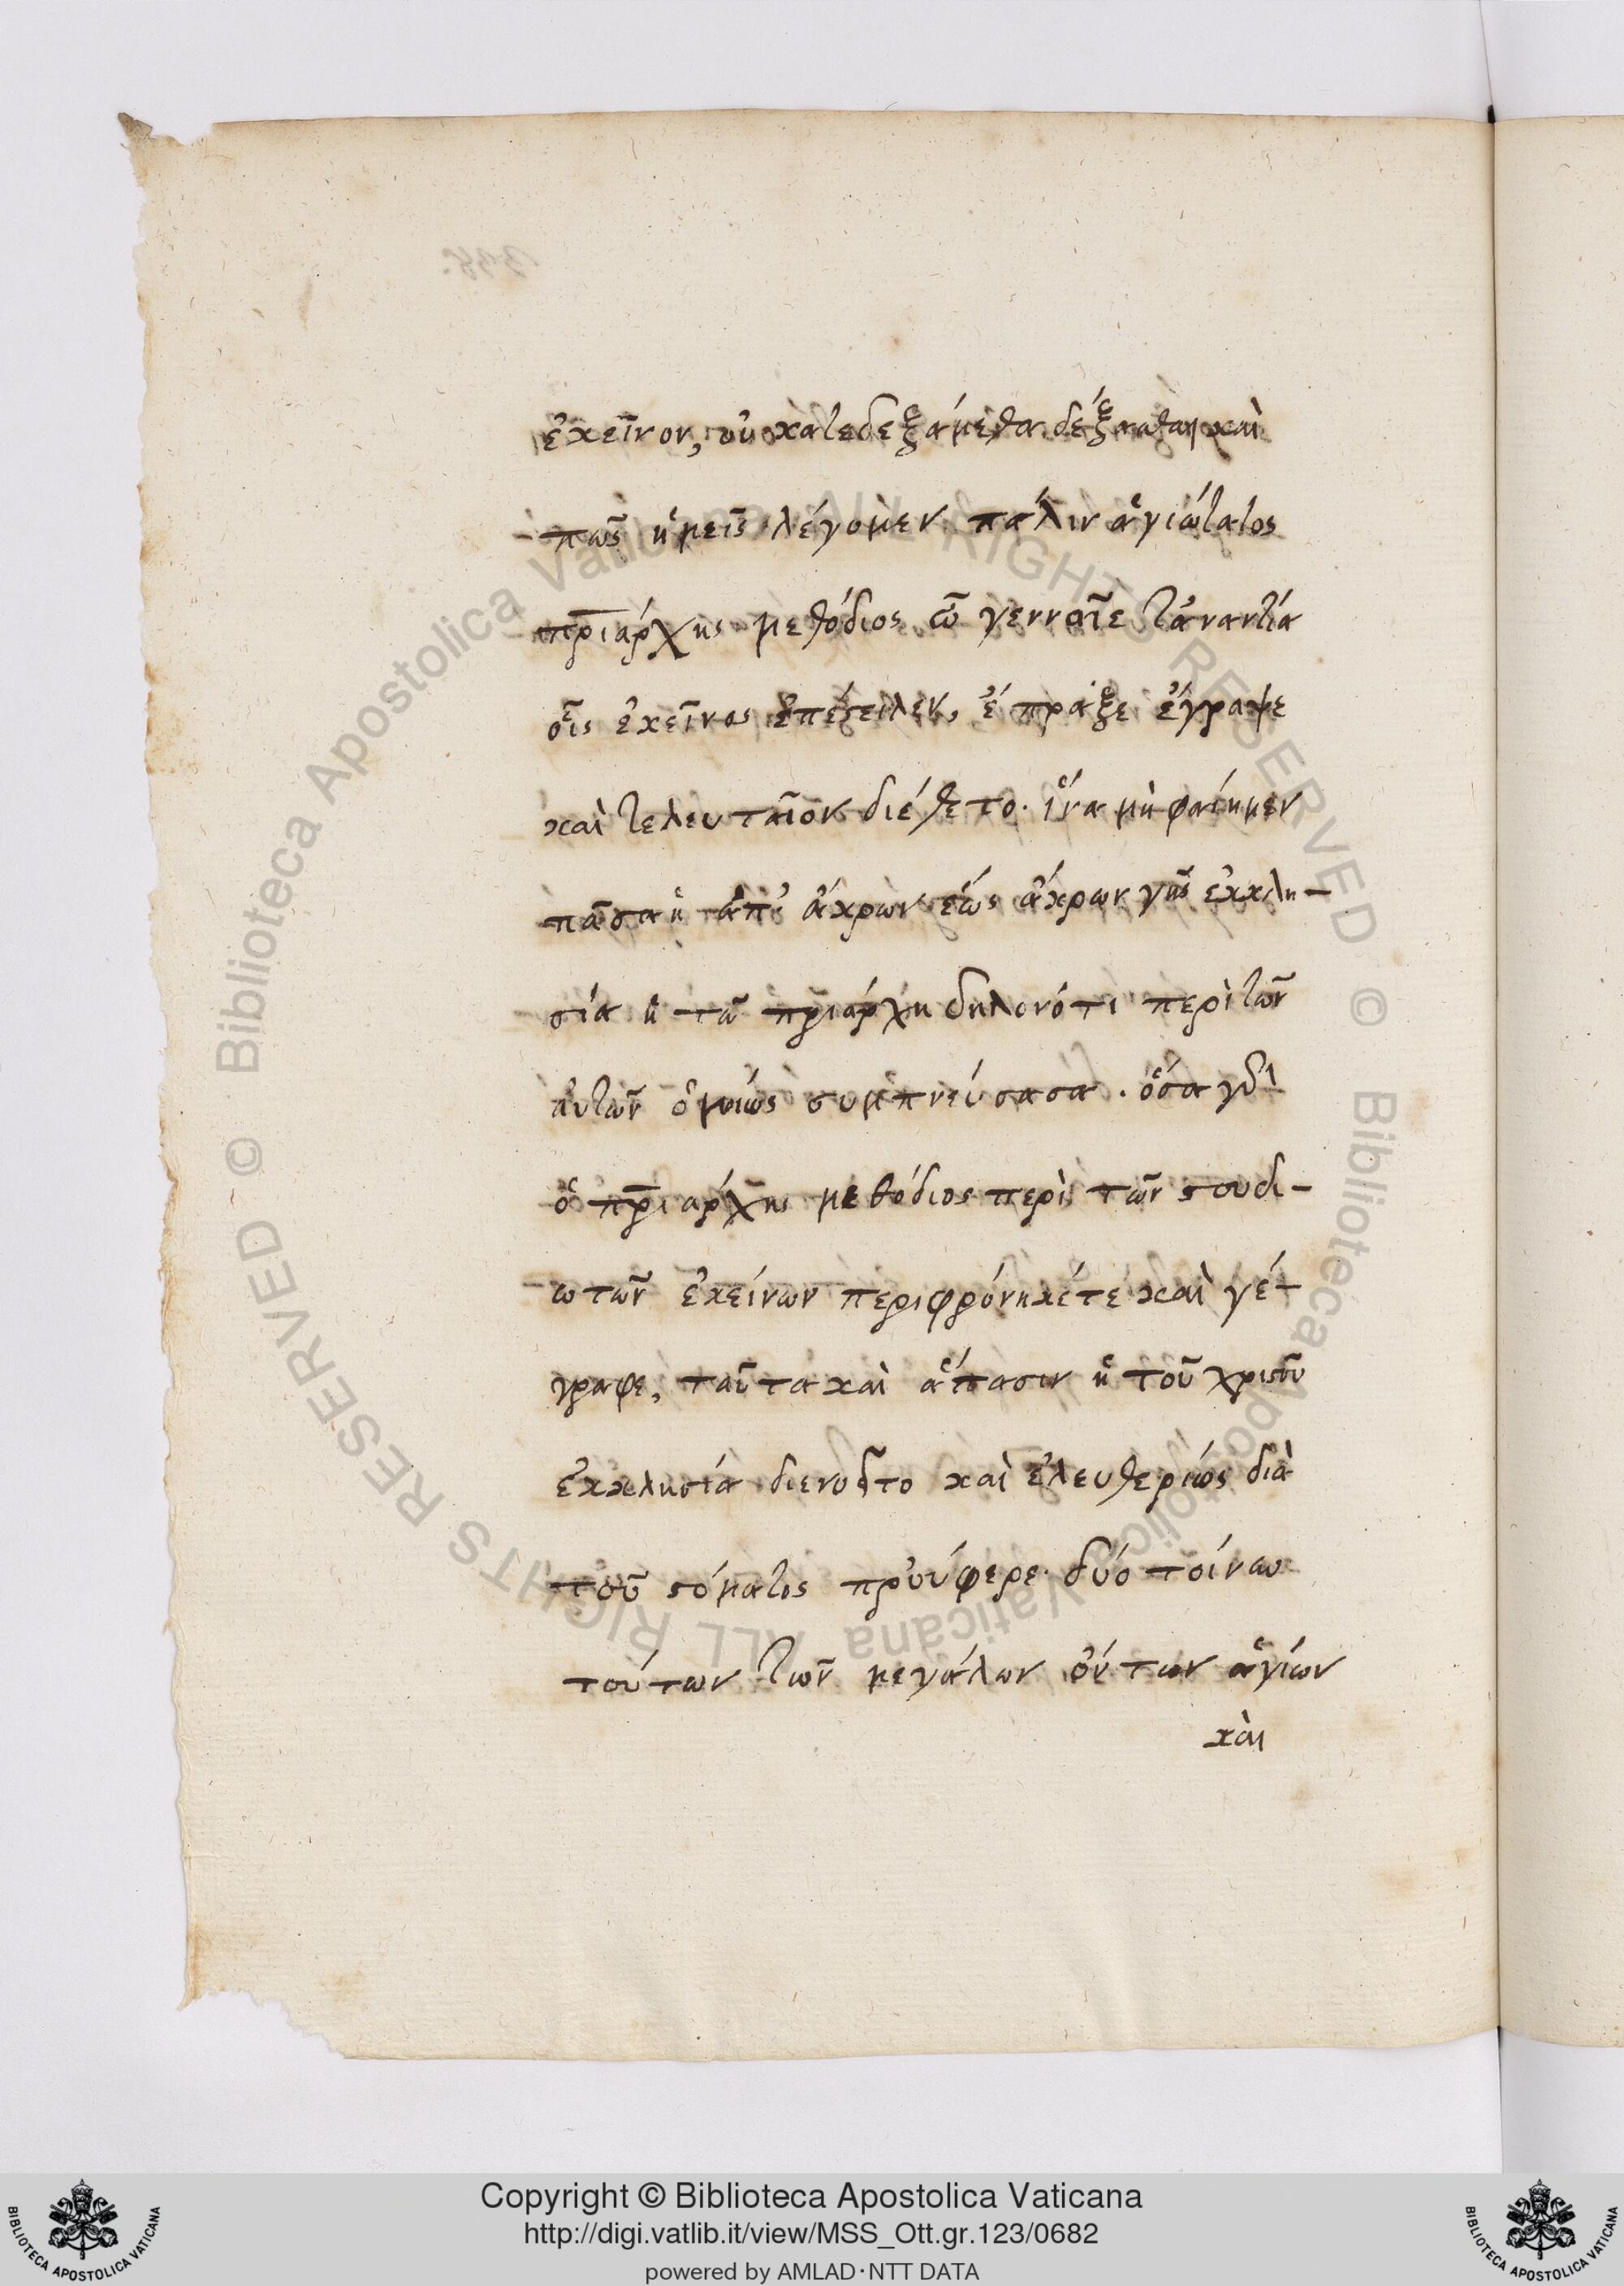 ἐκεῖνον, οὐ κατεδεξάμεθα δέξασθαι καὶ
πῶς ἡμεῖς λέγομεν πάλιν ἁγιώτατος
πριάρχης μεθόδιος ὦ γενναῖε τἀναντία
οἷς ἐκεῖνος ἐπέστειλεν, ἔπραξε ἔγραψε
καὶ τελευταῖον διέθετο. ἵνα μὴ φαίημεν
πᾶσα ἡ ἀπ' ἄκρων ἕως ἄκρων γῆς ἐκκλη-
σία ἡ τῶ πριάρχη δηλονότι περὶ τῶν
αὐτῶν ὁμοίως συμπνεύσασα. ὅσα γὰρ
ὁ πριάρχης μεθόδιος περὶ τῶν στουδι-
ωτῶν ἐκείνων περιφρόνηκέ τε καὶ γέ-
γραφε, ταῦτα καὶ ἅπασιν ἡ τοῦ χριστοῦ
ἐκκλησία διενοεῖτο καὶ ἐλευθερίως διὰ
τοῦ στόματος προύφερε. δύο τοίνυν
τούτων τῶν μεγάλων ὄντων ἁγίων
καὶ
Copyright © Biblioteca Apostolica Vaticana
http://digi.vatlib.it/view/MSS_Ott.gr.123/0682
powered by AMLAD·NTT DATA
BIBLIOTECA APOSTOLICA VATICANA
BIBLIOTECA APOSTOLICA VATICANA
© Biblioteca Apostolica Vaticana ALL RIGHTS RESERVED © Biblioteca Apostolica Vaticana ALL RIGHTS RESERVED